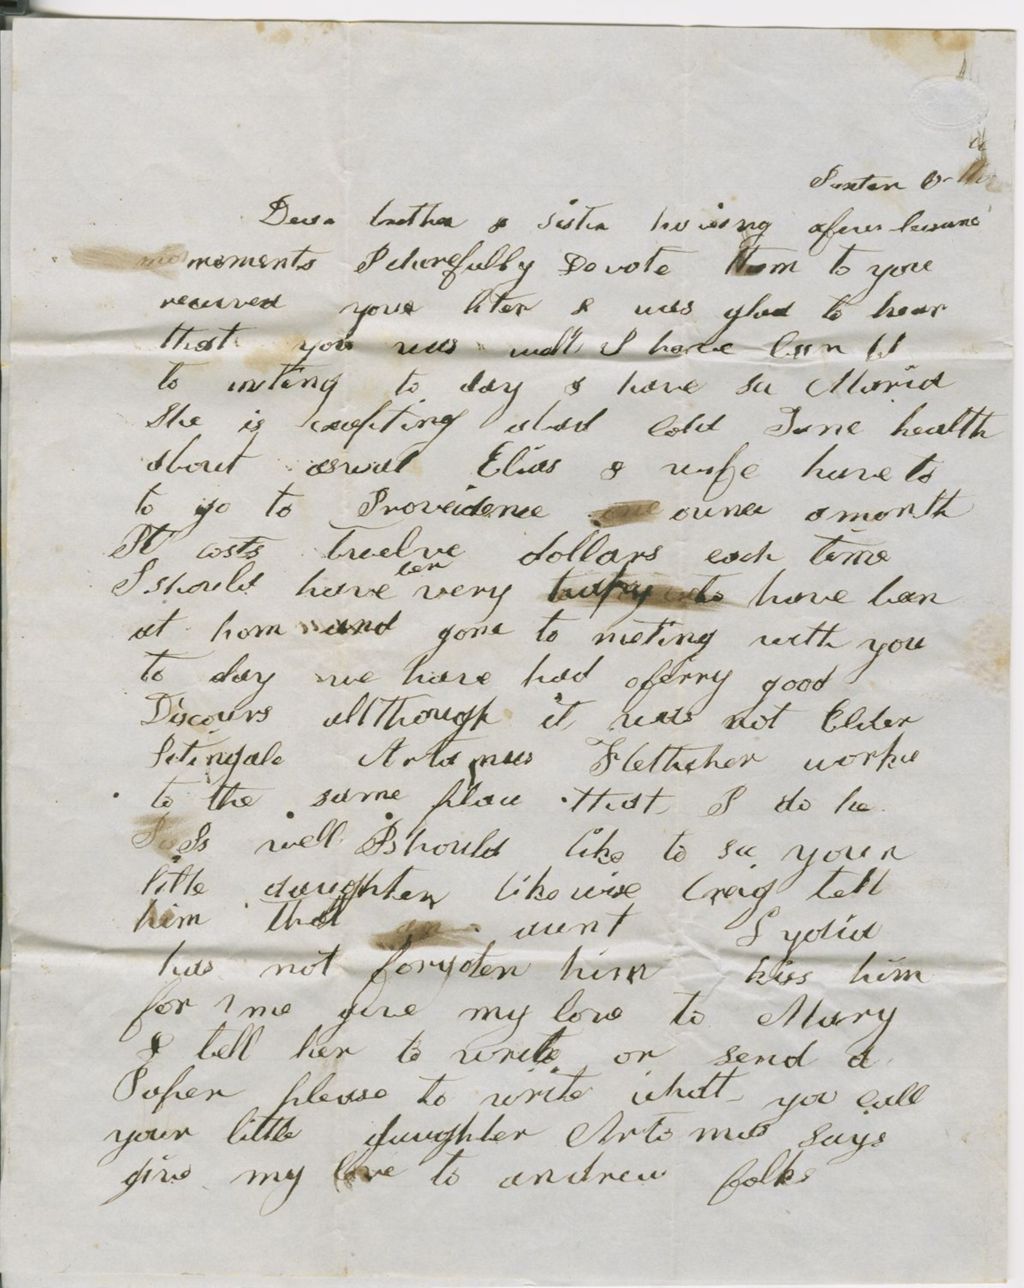 Dear brother & sister having afew leasure
moments I cherefully Devote them to you
received your liter & was glad to hear
that you was well I have been
to meting to day & have se Maria
She is geting abad cold Jane health
about aswal Elias & wife have to
to go to Proveidence ounce amonth
It costs twelve dollars each time
I should have ben very to have ban
at hom and gone to meting with you
to day we have had averry good
Discours allthough it was not Elder
Artamus Fletcher works
to the same place that I do he
Is well I should like to se your
litle daughter likewise Craig tell
him that aunt Lydia
has not forgoten him kiss him
for me give my love to Mary
& tell her to write or send a
Paper please to write what you call
your little daughter Artomas says
give my love to andrew folks